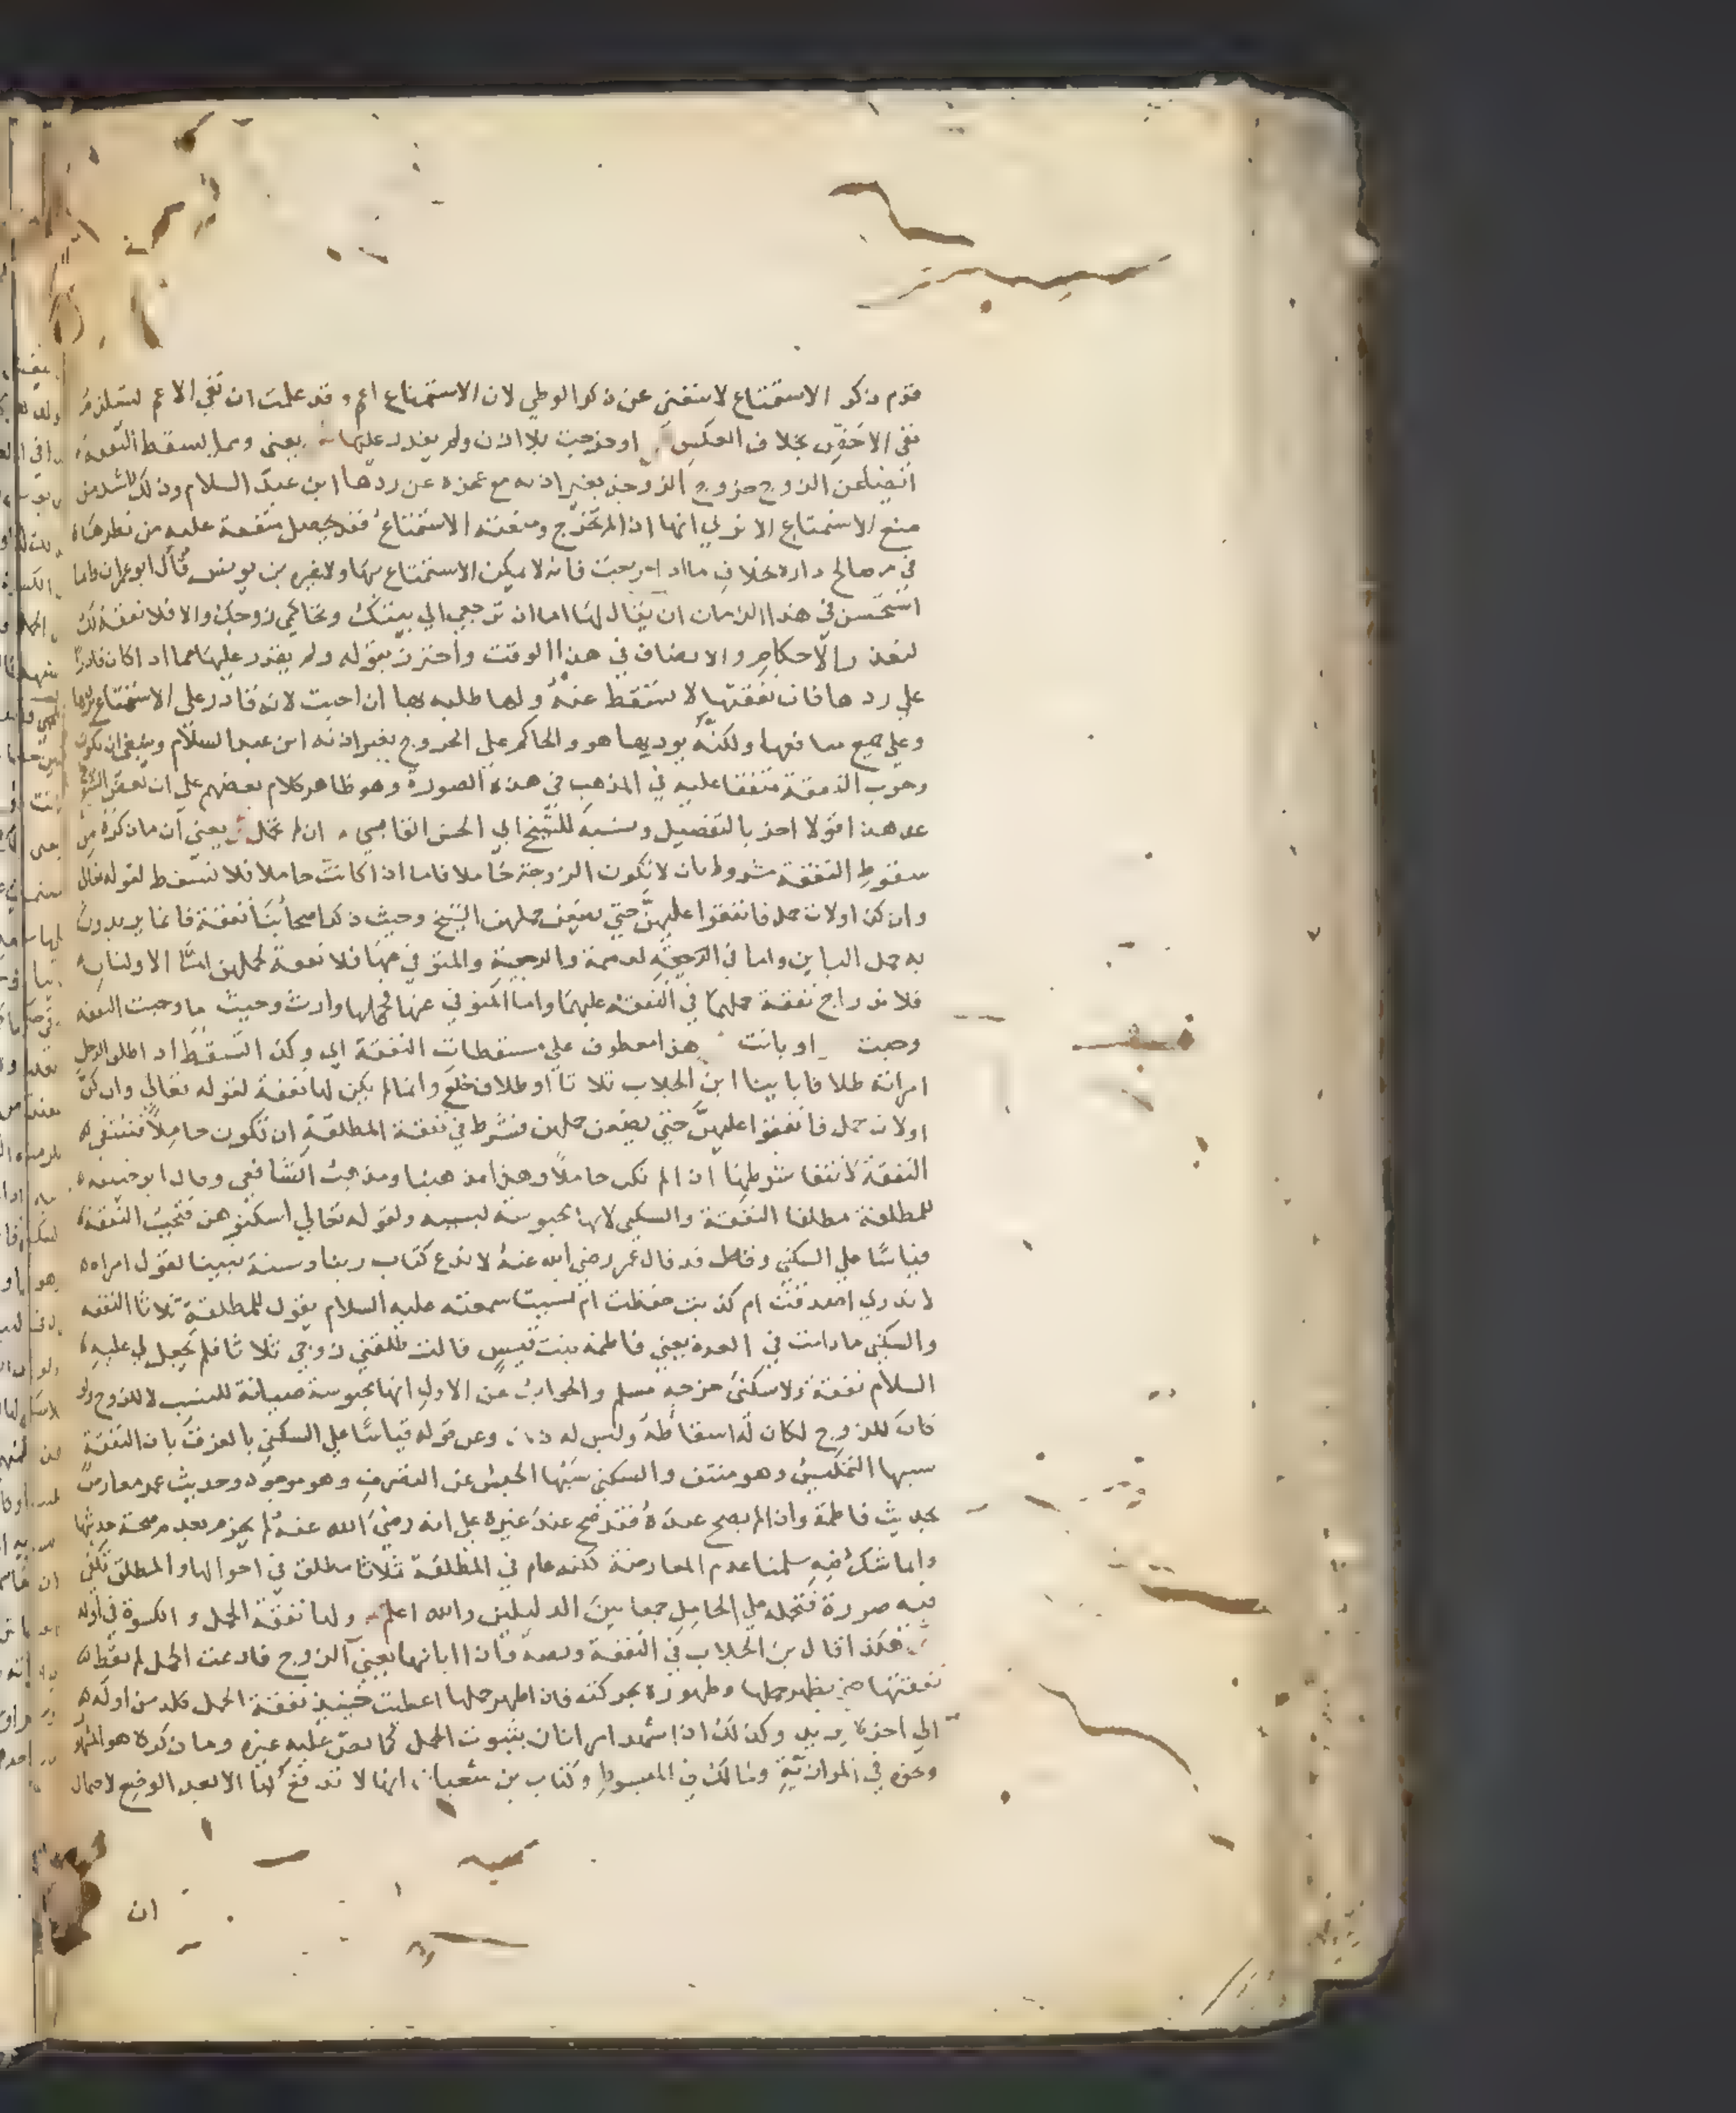 قدم ذكر الاستمتاع لاستغني عن ذكر الوطي لان الاستمتاع اعم وقد علمت ان نفي الاعم يستلزم
نفي الاخص بخلاف العكس او خرجت بلا اذن ولم يقدر عليها يعني ومما يسقط النفقة
ايضا عن الزوج خروج الزوجة بغير اذنه مع عجزه عن ردها ابن عبد السلام وذلك اشد من
منع الاستمتاع الا تري انها اذا لم تخرج ومنعته الاستمتاع فقد يحصل منفعة عليه من نظرها
في مصالح داره بخلاف ما اذا خرجت فانه لا يمكن الاستمتاع بها ولا غيره بن يونس قال ابو عمران واما
استحسن في هذا الزمان ان يقال لها اما ان ترجعي الي بيتك وتحاكمي زوجك والا فلا نفقة لك
لتعذر الاحكام والانصاف في هذا الوقت واحترز بقوله ولم يقدر عليها مما اذا كان قادرا
علي ردها فان نفقتها لا تسقط عنه ولها طلبه بها ان احبت لانه قادر علي الاستمتاع بها
وعلي جميع منافعها ولكنه يوديها هو والحاكم علي الخروج بغير اذنه ابن عبد السلام وينبغي ان يكون
وجوب النفقة متفقا عليه في المذهب في هذه الصورة وهو ظاهر كلام بعضهم علي ان بعض الشيوخ
عد هذا قولا اخر بالتفصيل ونسبه للشيخ ابي الحسن القابسي ان لم تحمل يعني ان ما ذكره من
سقوط النفقة مشروط بان لا تكون الزوجة حاملا فاما اذا كانت حاملا فلا تسقط لقوله تعالي
وان كن اولات حمل فانفقوا عليهن حتي يضعن حملهن الشيخ وحيث ذكر اصحابنا نفقة فانما يريدون
به حمل الباين واما في الرجعية والمتوفي عنها فلا نفقة لحملهن اما الاولتان
فلاندراج نفقة حملهما في النفقة عليهما واما المتوفي عنها فحملها وارث وحيث ما وجبت النفقه
وجبت او بانت هذا معطوف علي مسقطات النفقة اي وكذا تسقط اذا طلق الرجل
امراته طلاقا باينا ابن الجلاب ثلاثا او طلاق خلع وانما لم يكن لها نفقة لقوله تعالي وان كن
اولات حمل فانفقوا عليهن حتي يضعن حملهن فشرط في نفقة المطلقة ان تكون حاملا فتنتفي
النفقة لانتفا شرطها اذا لم تكن حاملا وهذا مذهبنا ومذهب الشافعي وقال ابو حنيفه
للمطلقة مطلقا النفقة والسكني لانها محبوسة لسببه ولقوله تعالي اسكنوهن فتجب النفقة
قياسا علي السكني وقال قد قال عمر رضي الله عنه لا ندع كتاب ربنا وسنة نبينا لقول امراه
لا ندري اصدقت ام كذبت حفظت ام نسيت سمعته عليه السلام يقول للمطلقة ثلاثا النفقه
والسكني ما دامت في العدة يعني فاطمة بنت قيس قالت طلقني زوجي ثلاثا فلم يجعل لي عليه
السلام نفقة ولا سكني خرجه مسلم والجواب عن الاول انها محبوسة صيانة للنسب لا للزوج ولو
كان للزوج لكان له اسقاطه وليس له ذلك وعن قوله قياسا علي السكني بالفرق بان النفقة
سببها التمكين وهو منتف والسكني سببها الحبس عن التصرف وهو موجود وحديث عمر معارض
بحديث فاطمة وان لم يصح عنده فقد صح عند غيره علي انه رضي الله عنه لم يجزم بعدم صحة حديثها
وانما شك فيه سلمنا عدم المعارضة لكنه عام في المطلقة ثلاثا مطلق في احوالها والمطلق يكفي
فيه صورة فتحمله علي الحامل جمعا بين الدليلين والله اعلم ولها نفقة الحمل والكسوة في اوله
هكذا قال بن الجلاب في النفقة ونصه فاذا ابانها يعني الزوج فادعت الحمل لم تعط
نفقتها حتي يظهر حملها وظهوره بحركته فاذا ظهر حملها اعطت حينيذ نفقة الحمل كله من اوله
الي اخره وكذلك اذا شهد امراتان بثبوت الحمل كما نص عليه غيره وما ذكره هو المشهور
ونحوه في الموازية ومالك في المبسوط وكتاب بن شعبان انها لا تدفع لها الا بعد الوضع لاحتمال
ان